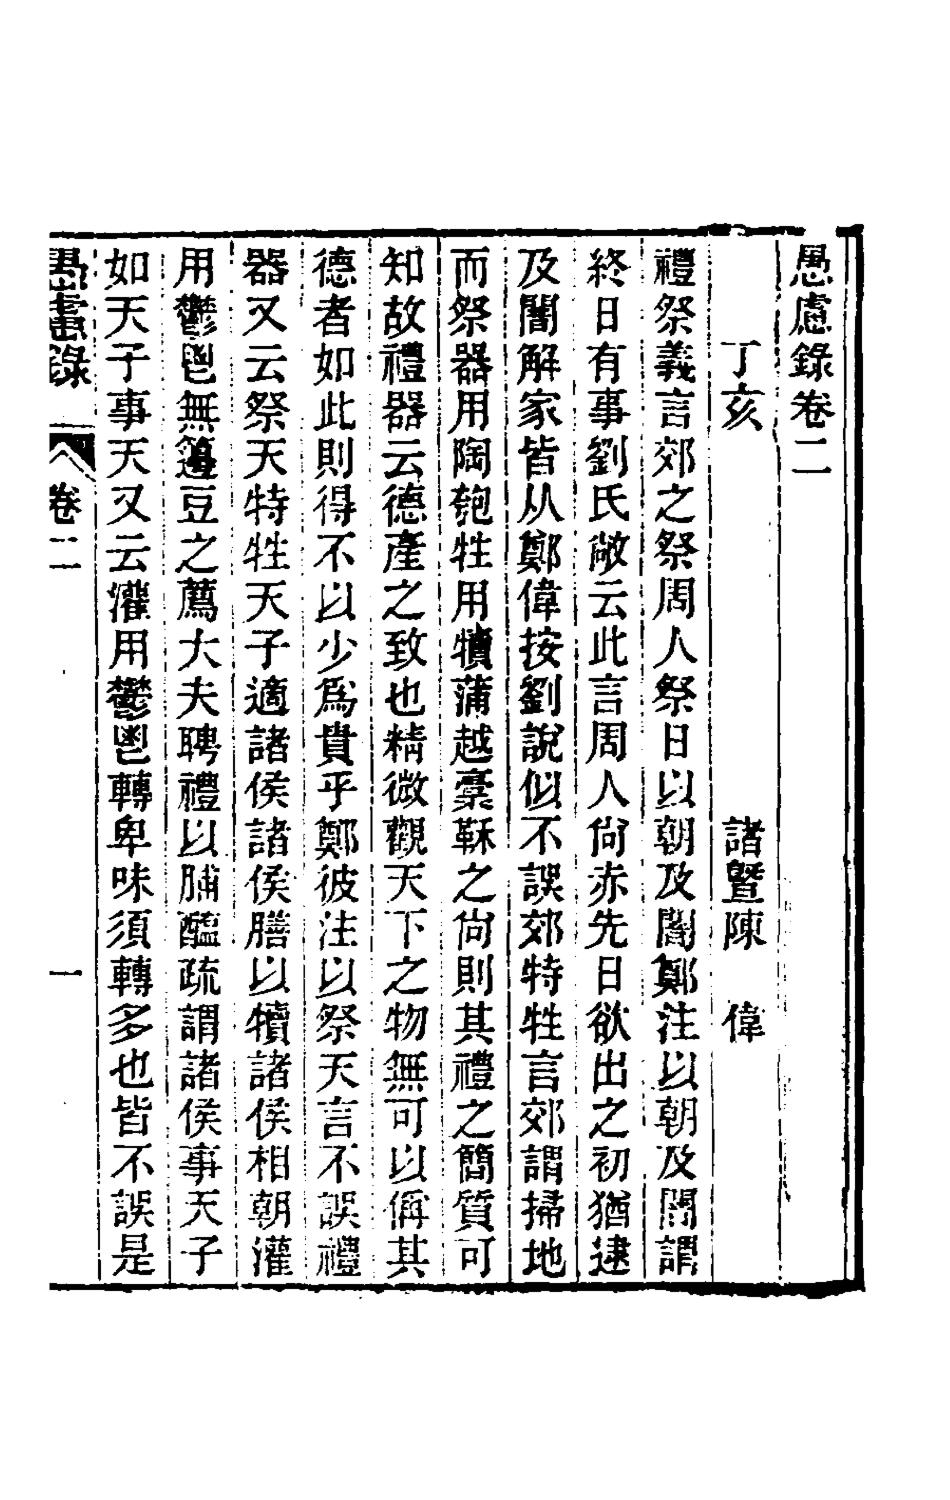 愚慮錄卷二
丁亥 諸曁陳 偉
禮祭義言郊之祭周人祭日以朝及闇鄭注以朝及闇謂
終日有事劉氏敞云此言周人尙赤先日欲出之初猶逮
及闇解家皆从鄭偉按劉說似不誤郊特牲言郊謂掃地
而祭器用陶匏牲用犢蒲越稾鞂之尙則其禮之簡質可
知故禮器云德產之致也精微觀天下之物無可以偁其
德者如此則得不以少爲貴乎鄭彼注以祭天言不誤禮
器又云祭天特牲天子適諸侯諸侯膳以犢諸侯相朝灌
用鬱鬯無籩豆之薦大夫聘禮以脯醢疏謂諸侯事天子
如天子事天又云灌用鬱鬯轉卑味須轉多也皆不誤是
愚慮錄 卷二 一